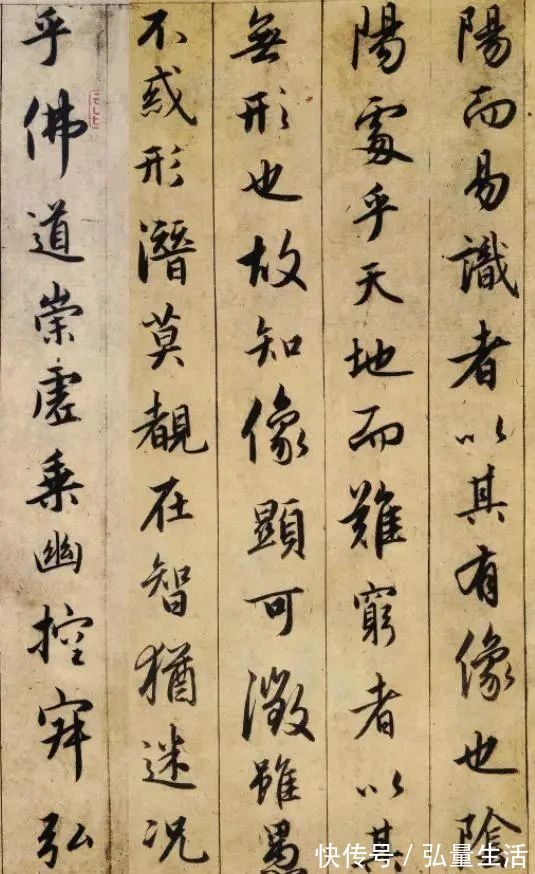 陽而易識者以其有像也陰
陽處乎天地而難窮者以其
無形也故知像顯可徵雖愚
不惑形潛莫覩在智猶迷况
乎佛道崇虛乗幽控寂弘
快传号/弘量生活